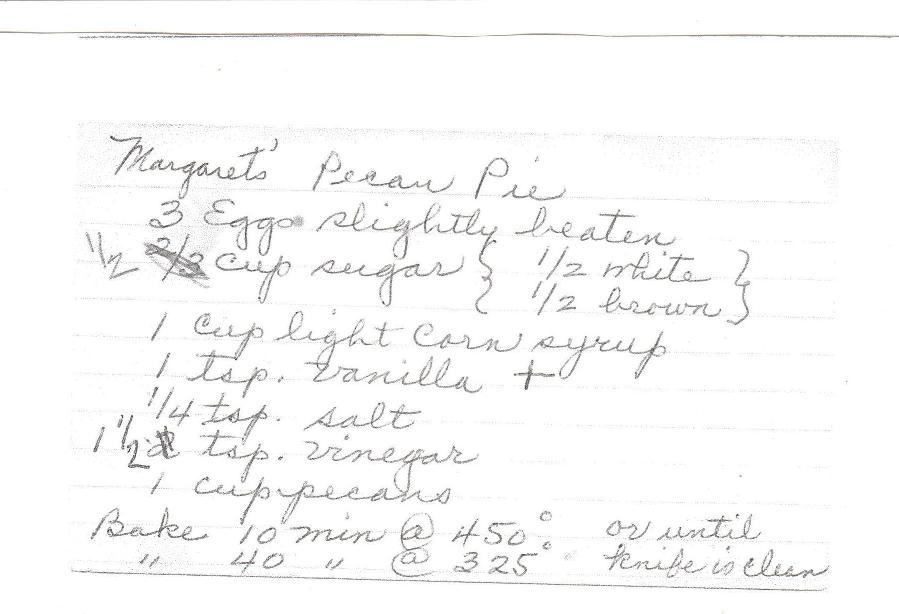 Margaret's Pecan Pie
3 Eggs slightly beaten
1/2 2/3 cup sugar { 1/2 white }
{ 1/2 brown }
1 cup light corn syrup
1 tsp. vanilla +
1/4 tsp. salt
1 1/2 tsp. vinegar
1 cup pecans
Bake 10 min @ 450° or until
" 40 " @ 325° knife is clean